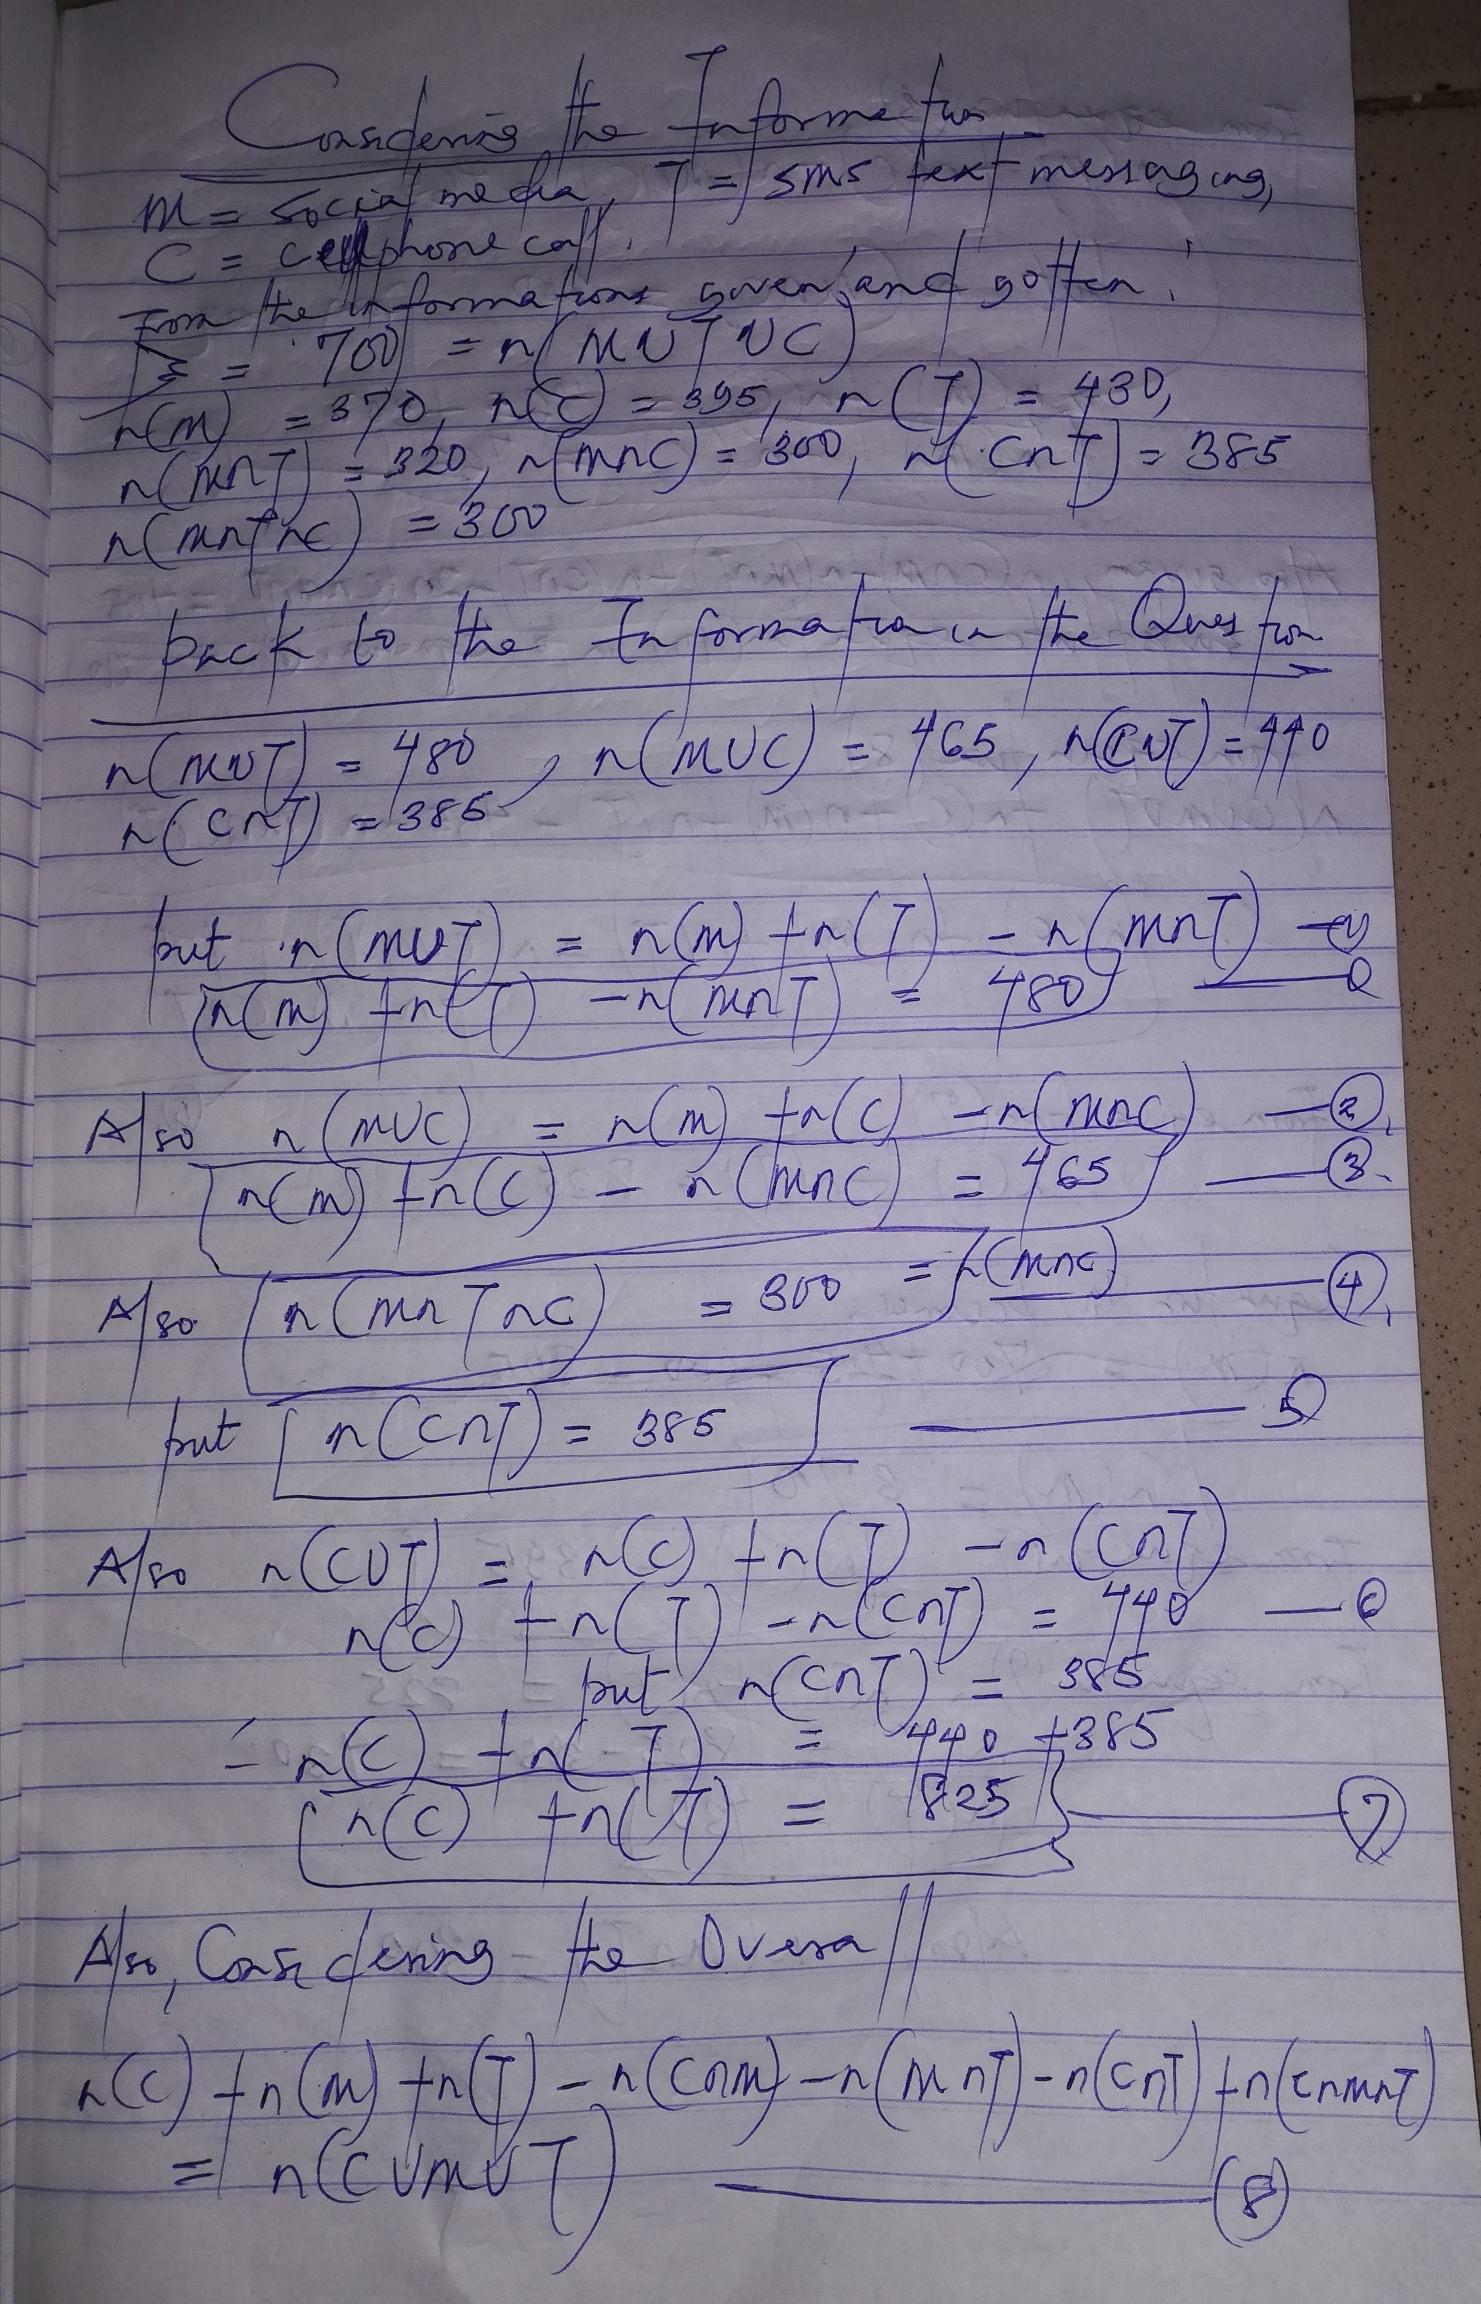 Considering the Information
M = social media, T = sms text messaging,
C = cellphone call.
From the informations given and gotten.
= 700 = n(MUTUC)
n(M) = 370, n(C) = 395, n(T) = 430,
n(MnT) = 320, n(MnC) = 300, n(CnT) = 385
n(MnTnC) = 300
back to the Information in the Question
n(MUT) = 480, n(MUC) = 465, n(CUT) = 440
n(CnT) = 385
but n(MUT) = n(M) + n(T) - n(MnT)
n(M) + n(T) - n(MnT) = 480
Also n(MUC) = n(M) + n(C) - n(MnC) — ②
n(M) + n(C) - n(MnC) = 465 — ③
Also n(MnTnC) = 300 = n(MnC) — ④
but n(CnT) = 385 — 5
Also n(CUT) = n(C) + n(T) - n(CnT)
n(C) + n(T) - n(CnT) = 440 — 6
but n(CnT) = 385
n(C) + n(T) = 440 + 385
n(C) + n(T) = 825 — ⑦
Also, Considering the Overall
n(C) + n(M) + n(T) - n(CnM) - n(MnT) - n(CnT) + n(CnMnT)
= n(CUMUT) — ⑧